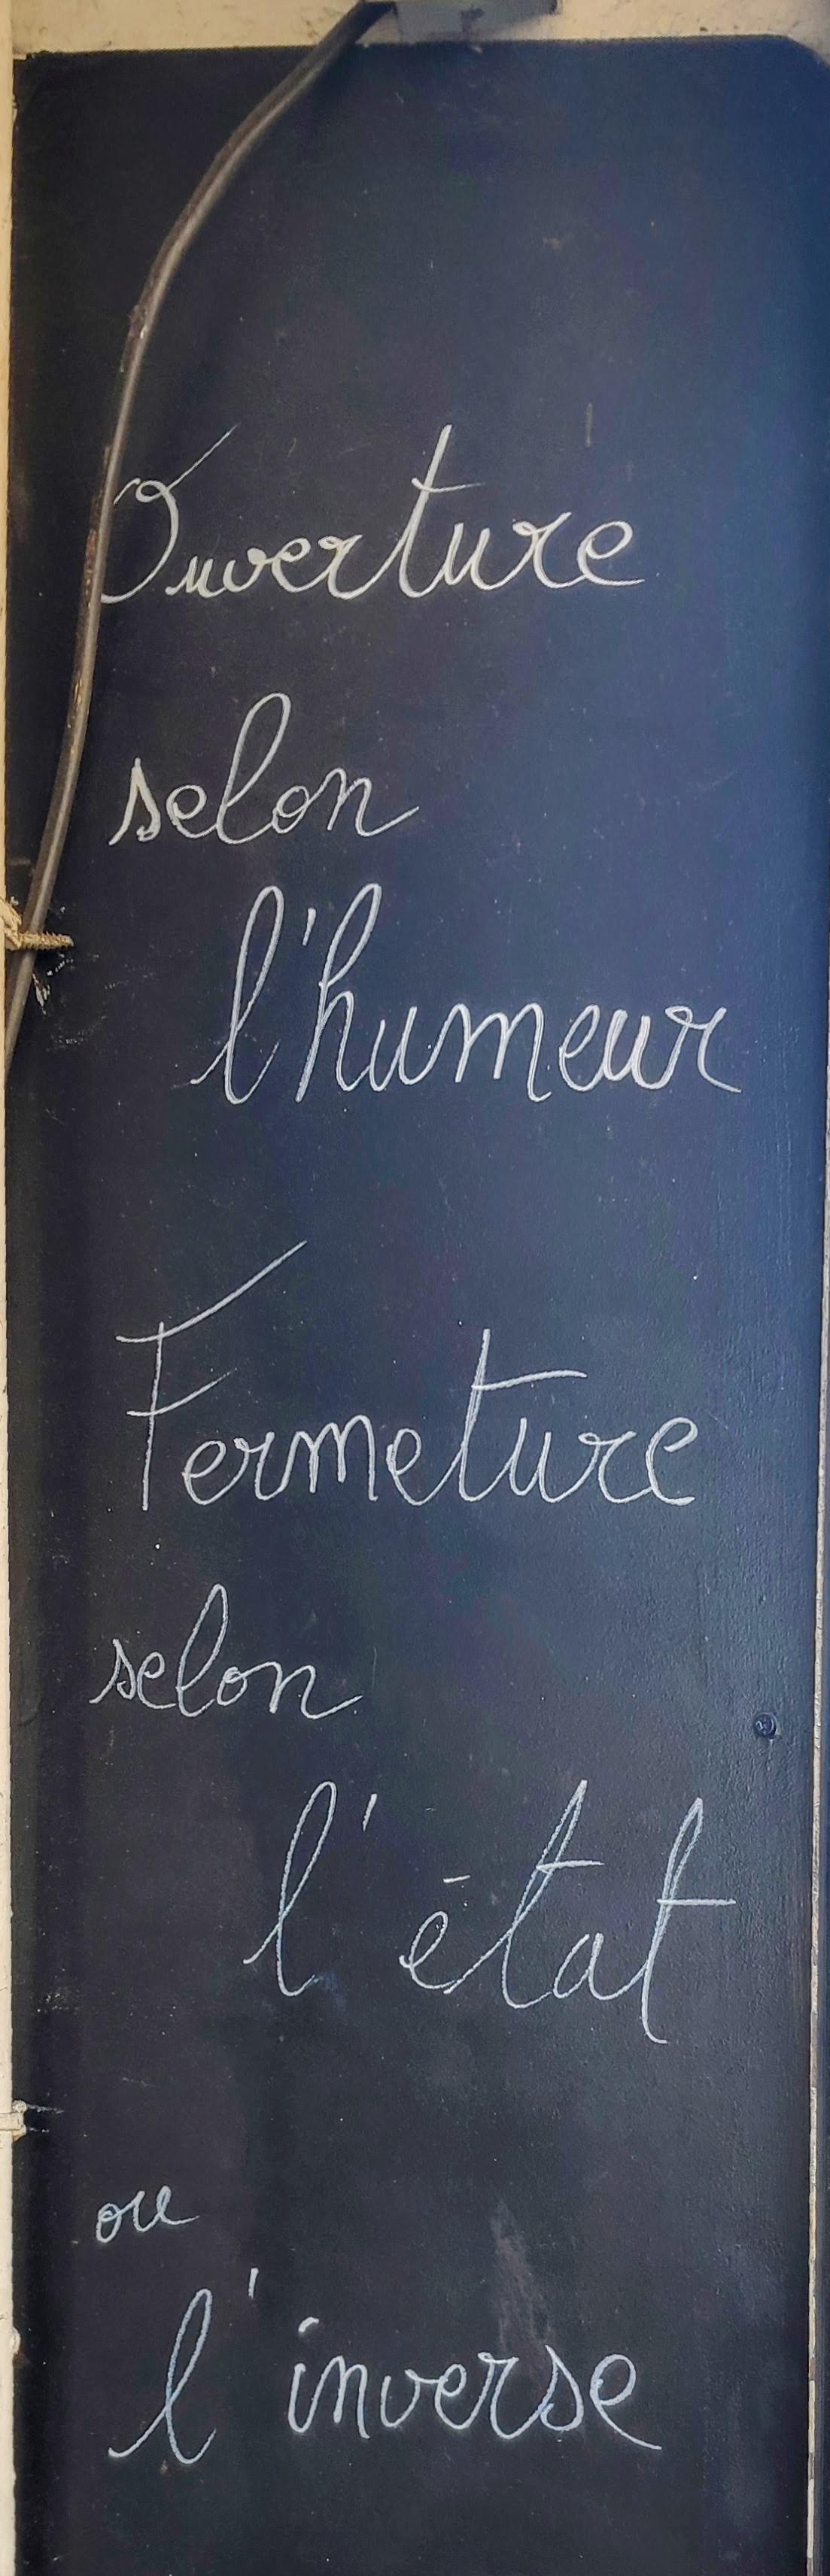 Ouverture
selon
l'humeur
Fermeture
selon
l'état
ou
l'inverse